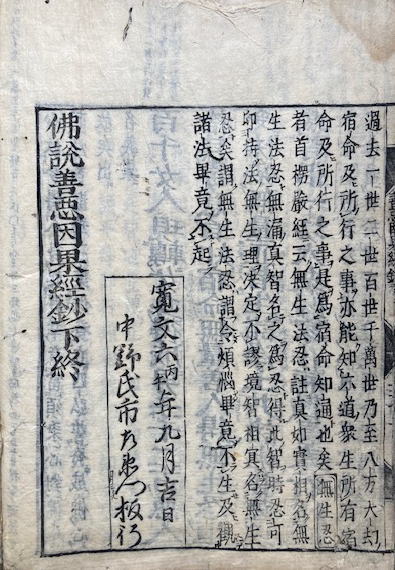 過去一世二世百世千萬世乃至八万大劫
宿命及所行之事亦能知六道衆生所有宿
命及所行之事是爲宿命知通也矣無生忍
者首楞嚴經云無生法忍註真如實相名無
生法忍無漏真智名之爲忍得此智時忍可
印持法無生理決定不謬境智相冥名無生
忍矣謂無生法忍謂令煩惱畢竟不生及觀
諸法畢竟不起
寛文六丙午年九月吉日
中野氏市右衛門板行
佛說善惡因果經鈔下終